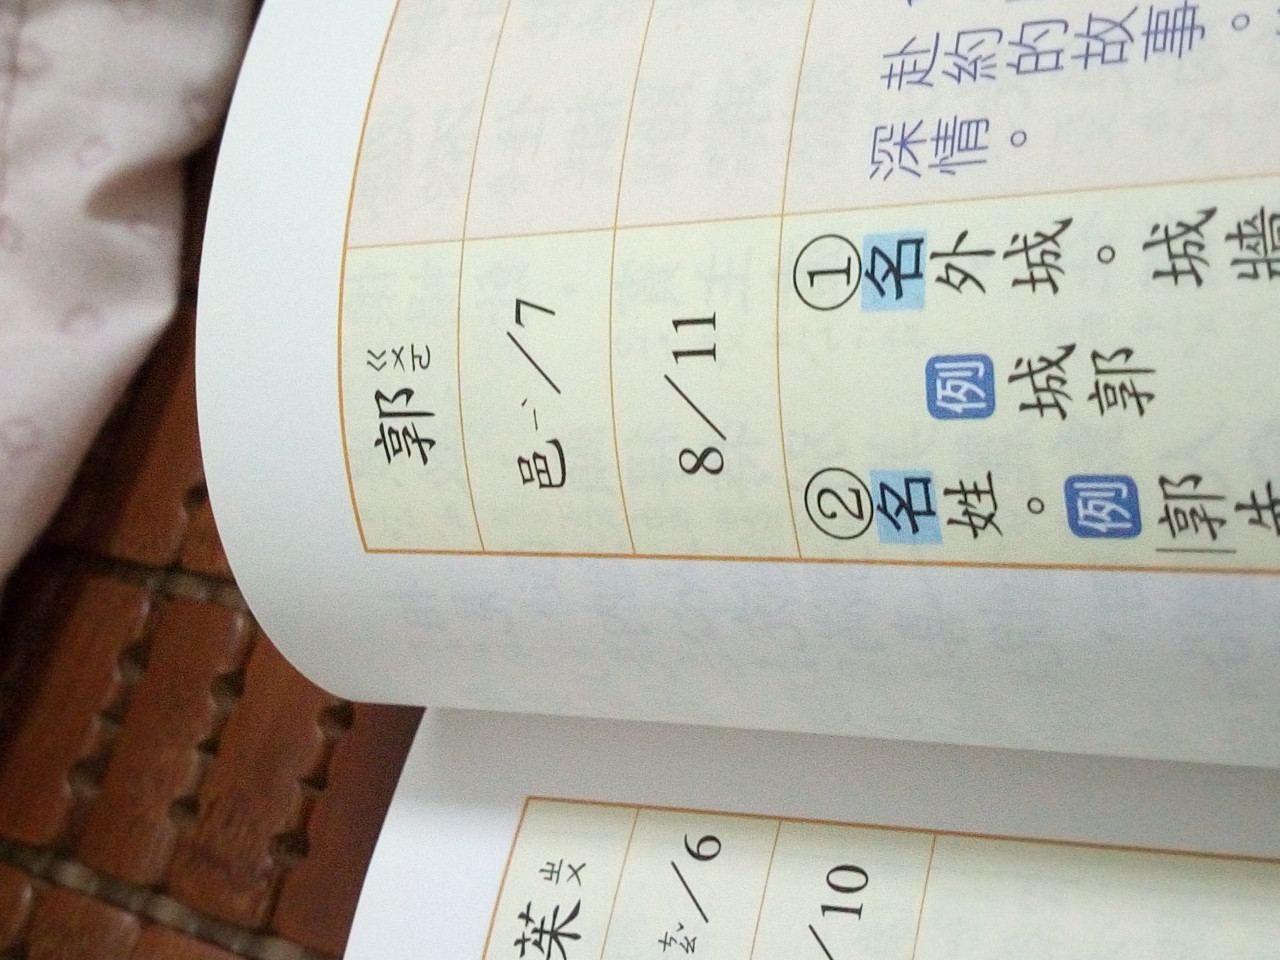 赴約的故事。
深情。
郭 ㄍㄨㄛ
邑 ㄧˋ/7
8/11
①名外城。城牆
例 城郭
②名姓。例 郭先
茱 ㄓㄨ
/6
/10